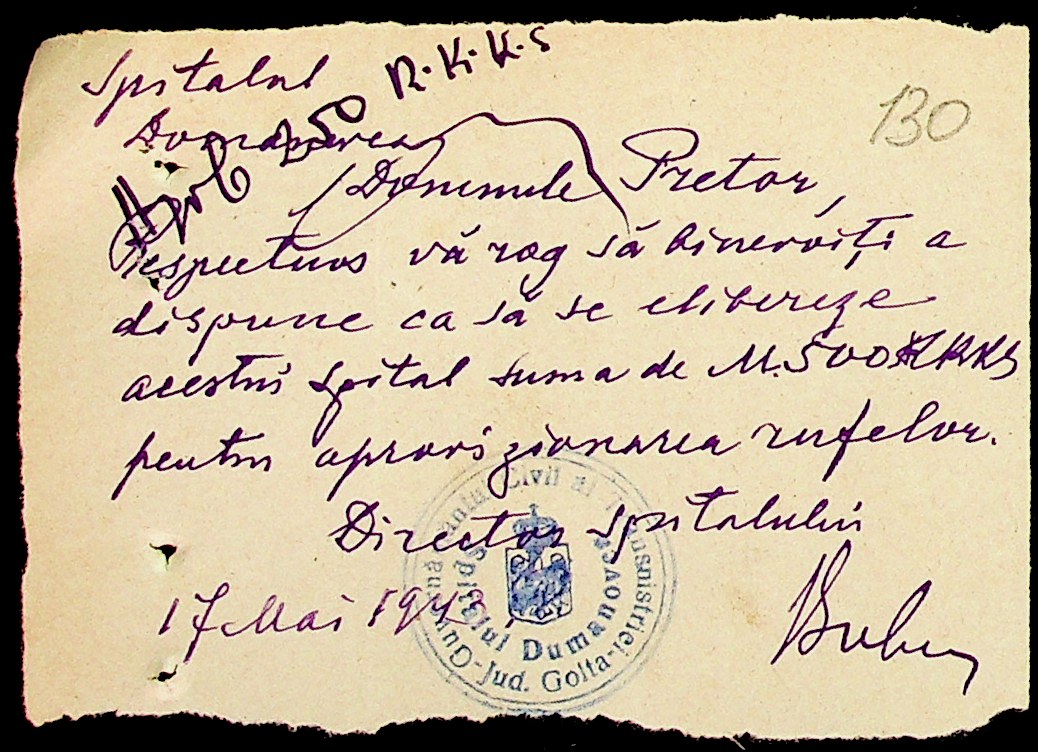 Spitalul
Domanevca
250 R.K.K.S
130
Domnule Pretor,
Respectuos vă rog să binevoiți a
dispune ca să se elibereze
acestui spital suma de M. 500 RKKS
pentru aprovizionarea rufelor.
Director Spitalului
17 Mai 1943
Guvernământul Civil al Transnistriei-Jud. Golta-
Spitalul Dumanovca